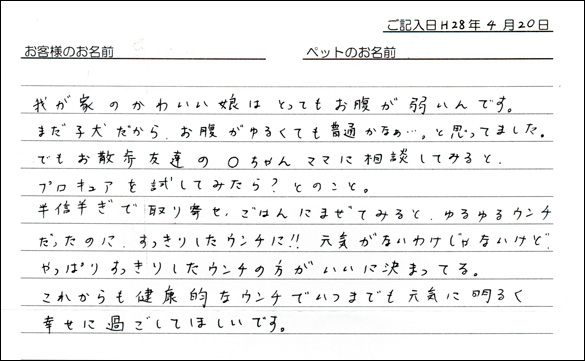 ご記入日H28年4月20日
お客様のお名前 ペットのお名前
我が家のかわいい娘はとってもお腹が弱いんです。
まだ子犬だから、お腹がゆるくても普通かなぁ…。と思ってました。
でもお散歩友達の〇ちゃんママに相談してみると、
プロキュアを試してみたら?とのこと。
半信半ぎで取り寄せ、ごはんにまぜてみると、ゆるゆるウンチ
だったのに、すっきりしたウンチに!!元気がないわけじゃないけど、
やっぱりすっきりしたウンチの方がいいに決まってる。
これからも健康的なウンチでいつまでも元気に明るく
幸せに過ごしてほしいです。